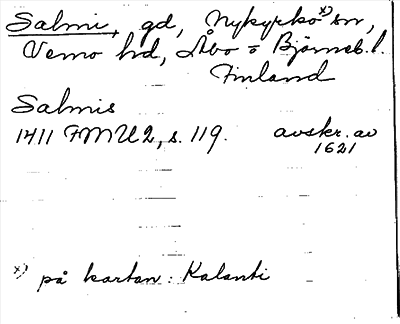 Salmi, gd, Nykyrko x) sn,
Vemo hd, Åbo o Björneb. l.
Finland
Salmis
1411 FMU 2, s. 119. avskr. av
1621
x) på kartan: Kalanti